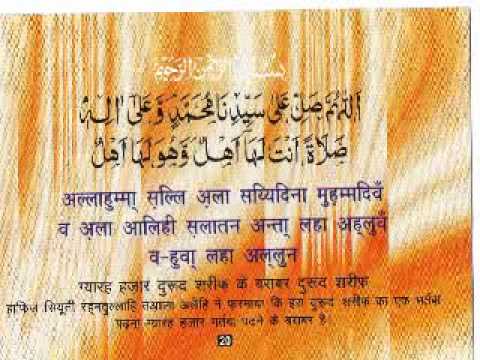 بِسْمِ اللهِ الرَّحْمٰنِ الرَّحِيْمِ
اَللّٰهُمَّ صَلِّ عَلٰى سَيِّدِنَا مُحَمَّدٍ وَّ عَلٰى اٰلِهٖ
صَلَاةً اَنْتَ لَهَا اَهْلٌ وَّهُوَ لَهَا اَهْلٌ
अल्लाहुम्मा सल्लि अ़ला सय्यिदिना मुहम्मदिवँ
व अ़ला आलिही सलातन अन्ता लहा अह्लुवँ
व-हुवा लहा अह्लुन
ग्यारह हज़ार दुरूद शरीफ के बराबर दुरूद शरीफ
हाफिज़ सियूती रहमतुल्लाहि तआला अलैहि ने फरमाया कि इस दुरूद शरीफ का एक मर्तबा
पढ़ना ग्यारह हज़ार मर्तबा पढ़ने के बराबर है
20